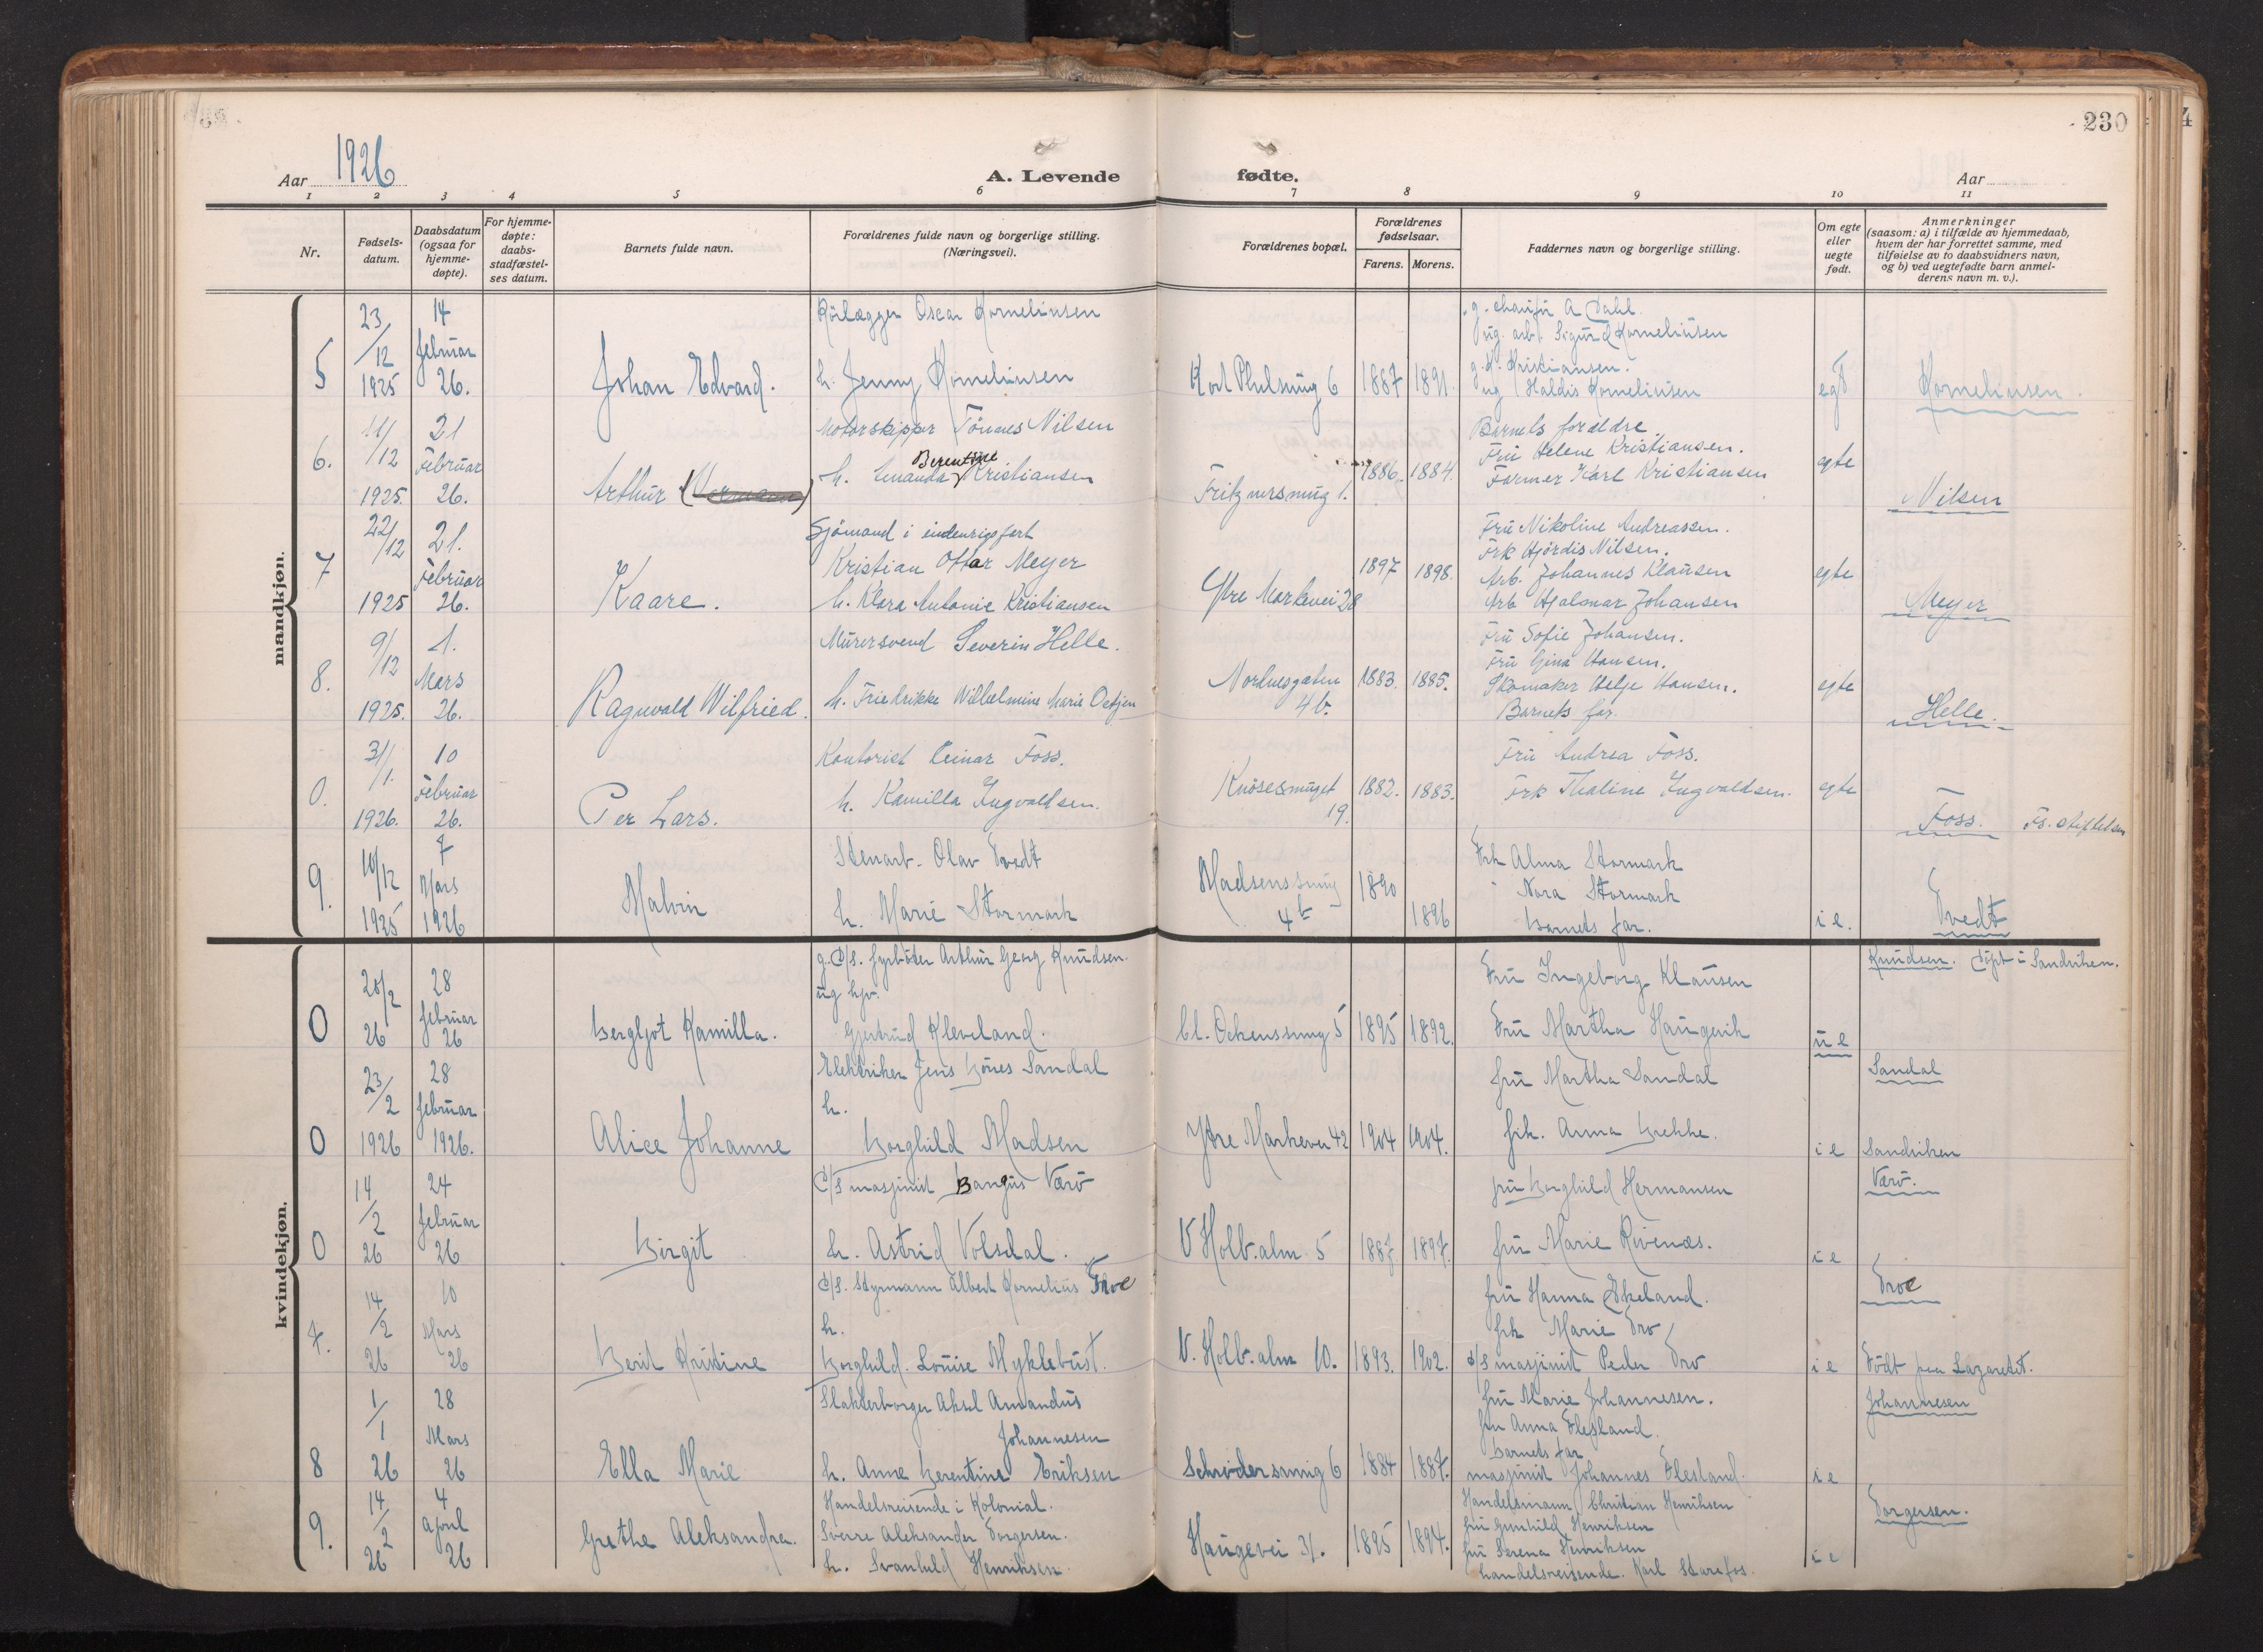 230
Aar 1926
A. Levende fødte.
Aar
1 2 3 4 5 6 7 8 9 10 11
Nr.
Fødsels-datum.
Daabsdatum (ogsaa for hjemme-døpte).
For hjemme-døpte: daabs-stadfæstel-ses datum.
Barnets fulde navn.
Forældrenes fulde navn og borgerlige stilling. (Næringsvei).
Forældrenes bopæl.
Forældrenes fødselsaar.
Farens. Morens.
Faddernes navn og borgerlige stilling.
Om egte eller uegte født.
Anmerkninger (saasom: a) i tilfælde av hjemmedaab, hvem der har forrettet samme, med tilføielse av to daabsvidners navn, og b) ved uegtefødte barn anmel-derens navn m. v.).
mandkjøn.
5 23/12 1925 14 februar 26. Johan Edvard.
Rörlægger Oscar Kornelinsen
h. Jenny Kornelinsen
6 1887 1891.
g. chauför A Dahl.
ug. arb. Sigurd Kornelinsen
g. K. Kristiansen.
ug Haldis Kornelinsen
egt
Kornelinsen.
6. 11/12 1925. 21 Februar 26. Arthur
Motorskipper Tönnes Nilsen
h. Amanda Berentine Kristiansen
1886. 1884.
Barnets forældre.
Fru Helene Kristiansen.
Farmer Karl Kristiansen
egte
Nilsen
7 22/12 1925 21. Februar 26. Kaare.
Sjömand i indenrigsfart
Kristian Ottar Meyer
h. Klara Antonie Kristiansen
Ytre Markevei 28
1897 1898.
Fru Nikoline Andreassen.
Frk Hjördis Nilsen.
Arb. Johannes Klausen
Arb Hjalmar Johansen
egte
Meyer
8. 9/12 1925. 1. Mars 26. Ragnvald Wilfried.
Murersvend Severin Helle.
h. Friedrikke Wilhelmine Marie Oetjen
Nordnesgaten 4b.
1883. 1885.
Fru Sofie Johansen.
Fru Gina Hansen.
Skomaker Helje Hansen.
Barnets far.
egte
Helle.
0. 31/1. 1926. 10 Februar 26. Per Lars.
Kontorist Einar Foss.
h. Kamilla Ingvaldsen.
Knösesmuget 19.
1882. 1883.
Fru Andrea Foss.
Frk Thaline Ingvaldsen.
egte
Foss. Fs. stiftelsen
9. 10/12 1925 7 Mars 1926 Malvin
Stenarb. Olav Tvedt
h. Marie Stormark
Madsenssmug 4b
1890 1896
Frk Alma Stormark
Nora Stormark
barnets far.
i e.
Tvedt
kvindekjøn.
0 20/2 26 28 februar 26 Bergljot Kamilla.
g. D/S. fyrböter Arthur Georg Knudsen.
ug hjv.
Gjertrud Kleveland.
Cl. Ockenssmug 5
1895 1892.
Fru Ingeborg Klausen
Fru Martha Haugerik
u e
Knudsen. Döpt i Sandviken.
0 23/2 1926 28 februar 1926. Alice Johanne
Elektriker Jens Bönes Sandal
h.
Borghild Madsen
Ytre Markevei 42
1904 1904.
fru Martha Sandal
frk. Anna Brekke.
i e
Sandal
Sandviken
0 14/2 26 24 februar 26 Birgit
D/S masjinist Bangus Værö
h. Astrid Volsdal.
V Holb. alm 5
1887. 1897.
fru Borghild Hermansen
fru Marie Rivenæs.
i e
Værö.
7. 14/2 26 10 Mars 26 Berit Kristine
D/S. Styrmann Albert Kornelius Troe
h.
Borghild. Louise Myklebust.
V. Holb. alm 10.
1893. 1902.
fru Hanna Ekeland.
frk Marie Tro
D/S masjinist Peder Tro
i e
Troe
Födt paa Lazarettet.
8 1/1 26 28 Mars 26 Ella Marie
Slakterborger Aksel Amandus
Johannesen
h. Anne Berentine Eriksen
Schrödersmug 6
1884 1887.
fru Marie Johannesen.
fru Anna Flesland.
barnets far
masjinist Johannes Flesland.
i e
Johannesen
9. 14/2 26 4 April 26 Grethe Aleksandra.
Handelsreisende i Kolonial.
Sverre Aleksander Torgersen.
h. Svanhild Henriksen.
Haugevei 31.
1895 1894.
Handelsmann Christian Henriksen
fru Gunhild Henriksen
fru Serena Henriksen
handelsreisende. Karl Starefos.
i e
Torgersen.